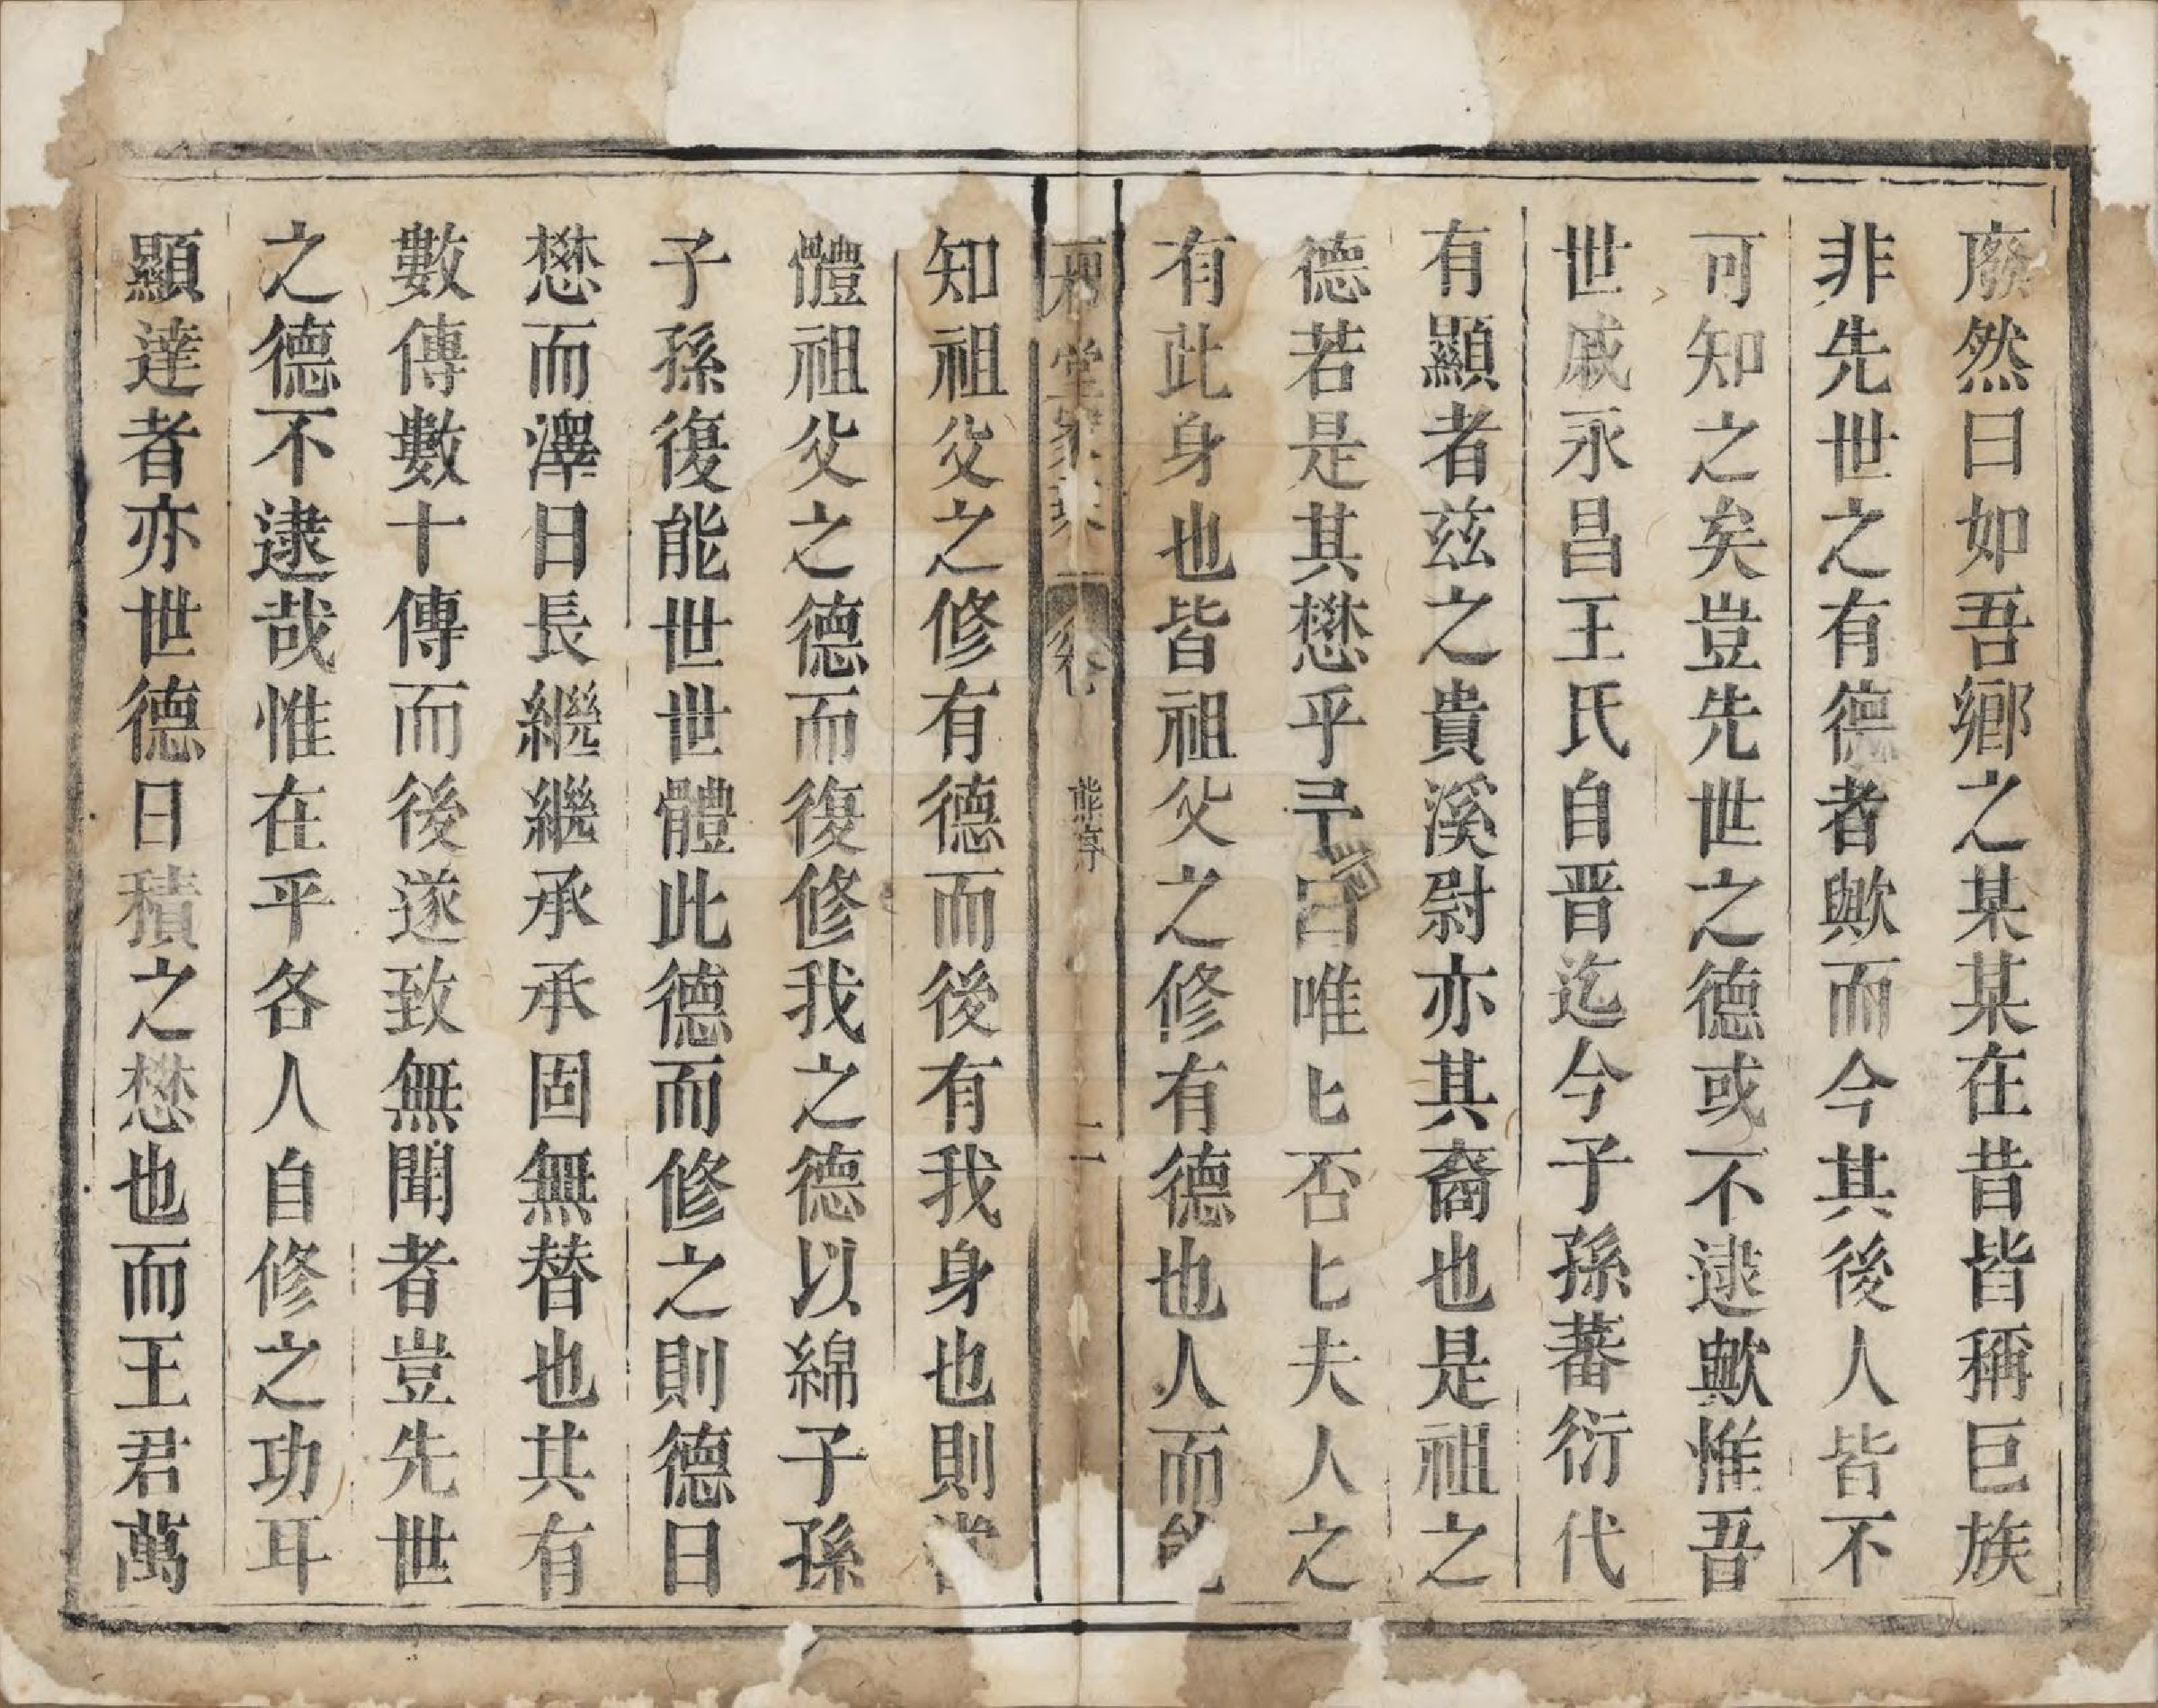 廢然曰如吾鄉之某某在昔皆稱巨族
非先世之有德者歟而今其後人皆不
可知之矣豈先世之德或不逮歟惟吾
世戚永昌王氏自晋迄今子孫蕃衍代
有顯者茲之貴溪尉亦其裔也是祖之
德若是其懋乎弓曰唯匕否匕夫人之
有此身也皆祖父之修有德也人而能
堂 卷 熊序 二
知祖父之修有德而後有我身也則當
體祖父之德而復修我之德以綿子孫
子孫復能世世體此德而修之則德日
懋而澤日長繼繼承承固無替也其有
數傳數十傳而後遂致無聞者豈先世
之德不逮哉惟在乎各人自修之功耳
顯達者亦世德日積之懋也而王君萬